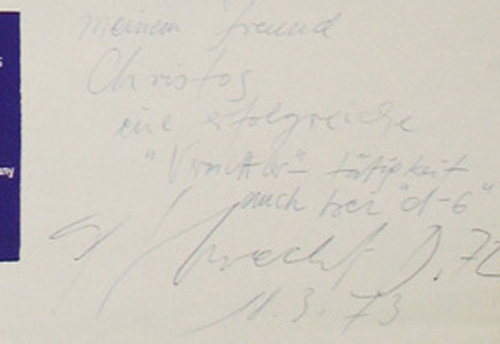 meinem Freund
Christos
eine erfolgreiche
"Vermittler"-tätigkeit
auch bei "d-6"
11.3.73